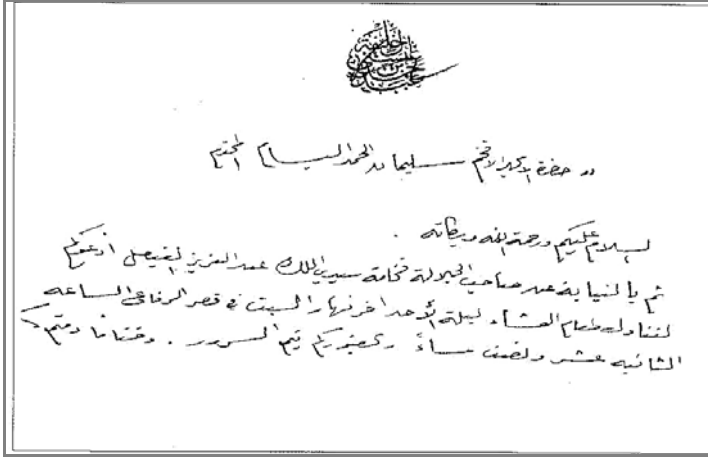 حضرة الأمجد الافخم سليمان الحمد البسام المحترم
السلام عليكم ورحمة الله وبركاته .
ثم بالنيابة عن صاحب الجلالة فخامة سيدي الملك عبد العزيز الفيصل ادعوكم
لتناول طعام العشاء ليلة الأحد اخر نهار السبت في قصر الرفاعي الساعه
الثانيه عشر ونصف مساءً وبحضوركم يتم السرور . وختاما دمتم